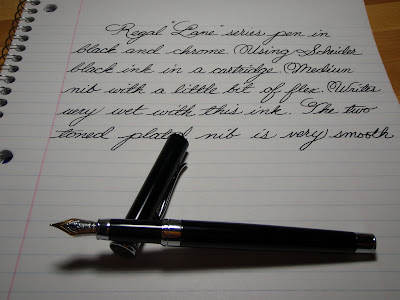 Regal "Lane" series pen in
black and chrome. Using Scheiler
black ink in a cartridge. Medium
nib with a little bit of flex. Writes
very wet with this ink. The two
toned plated nib is very smooth